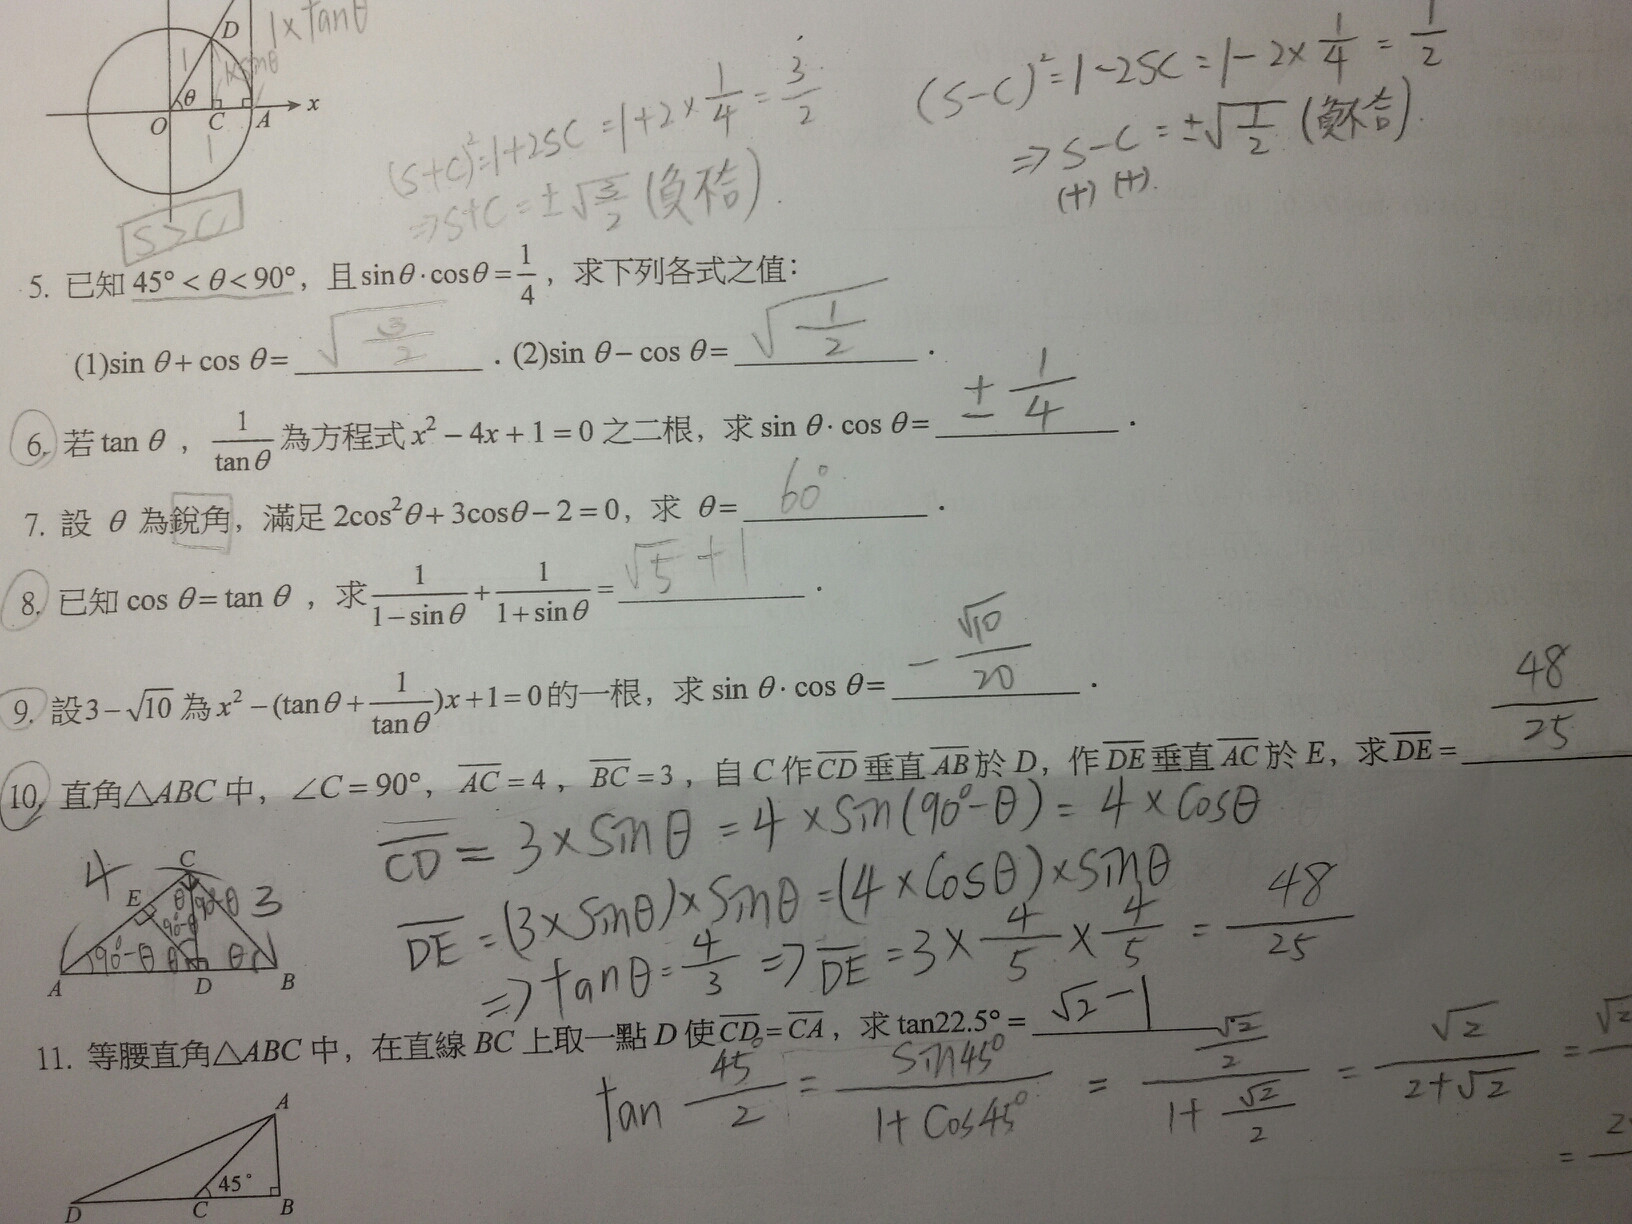 D
1×tanθ
1
1×sinθ
θ
x
O
C
A
1
S>C
(S+C)²=1+2SC=1+2×1/4=3/2
⇒S+C=±√(3/2) (負不合).
(S-C)²=1-2SC=1-2×1/4=1/2
⇒S-C=±√(1/2) (負不合).
(+) (+).
5. 已知 45°<θ<90°，且 sinθ·cosθ=1/4，求下列各式之值：
(1)sin θ+cos θ= √(3/2) . (2)sin θ-cos θ= √(1/2) .
6. 若 tan θ，1/tanθ 為方程式 x²-4x+1=0 之二根，求 sin θ·cos θ= ±1/4 .
7. 設 θ 為銳角，滿足 2cos²θ+3cosθ-2=0，求 θ= 60° .
8. 已知 cos θ=tan θ，求 1/(1-sinθ)+1/(1+sinθ)= √5+1 .
9. 設 3-√10 為 x²-(tanθ+1/tanθ)x+1=0 的一根，求 sin θ·cos θ= -√10/20 .
10. 直角△ABC 中，∠C=90°，AC=4，BC=3，自 C 作 CD 垂直 AB 於 D，作 DE 垂直 AC 於 E，求 DE= 48/25
CD=3×sinθ=4×sin(90°-θ)=4×cosθ
DE=(3×sinθ)×sinθ=(4×cosθ)×sinθ
⇒tanθ=4/3 ⇒DE=3×4/5×4/5=48/25
4
C
E
θ
90°-θ
3
90°-θ
90°-θ
θ
θ
A
D
B
11. 等腰直角△ABC 中，在直線 BC 上取一點 D 使 CD=CA，求 tan22.5°= √2-1
tan 45°/2 = sin45°/(1+cos45°) = (√2/2)/(1+√2/2) = √2/(2+√2) = √2
= 2
A
45°
D
C
B